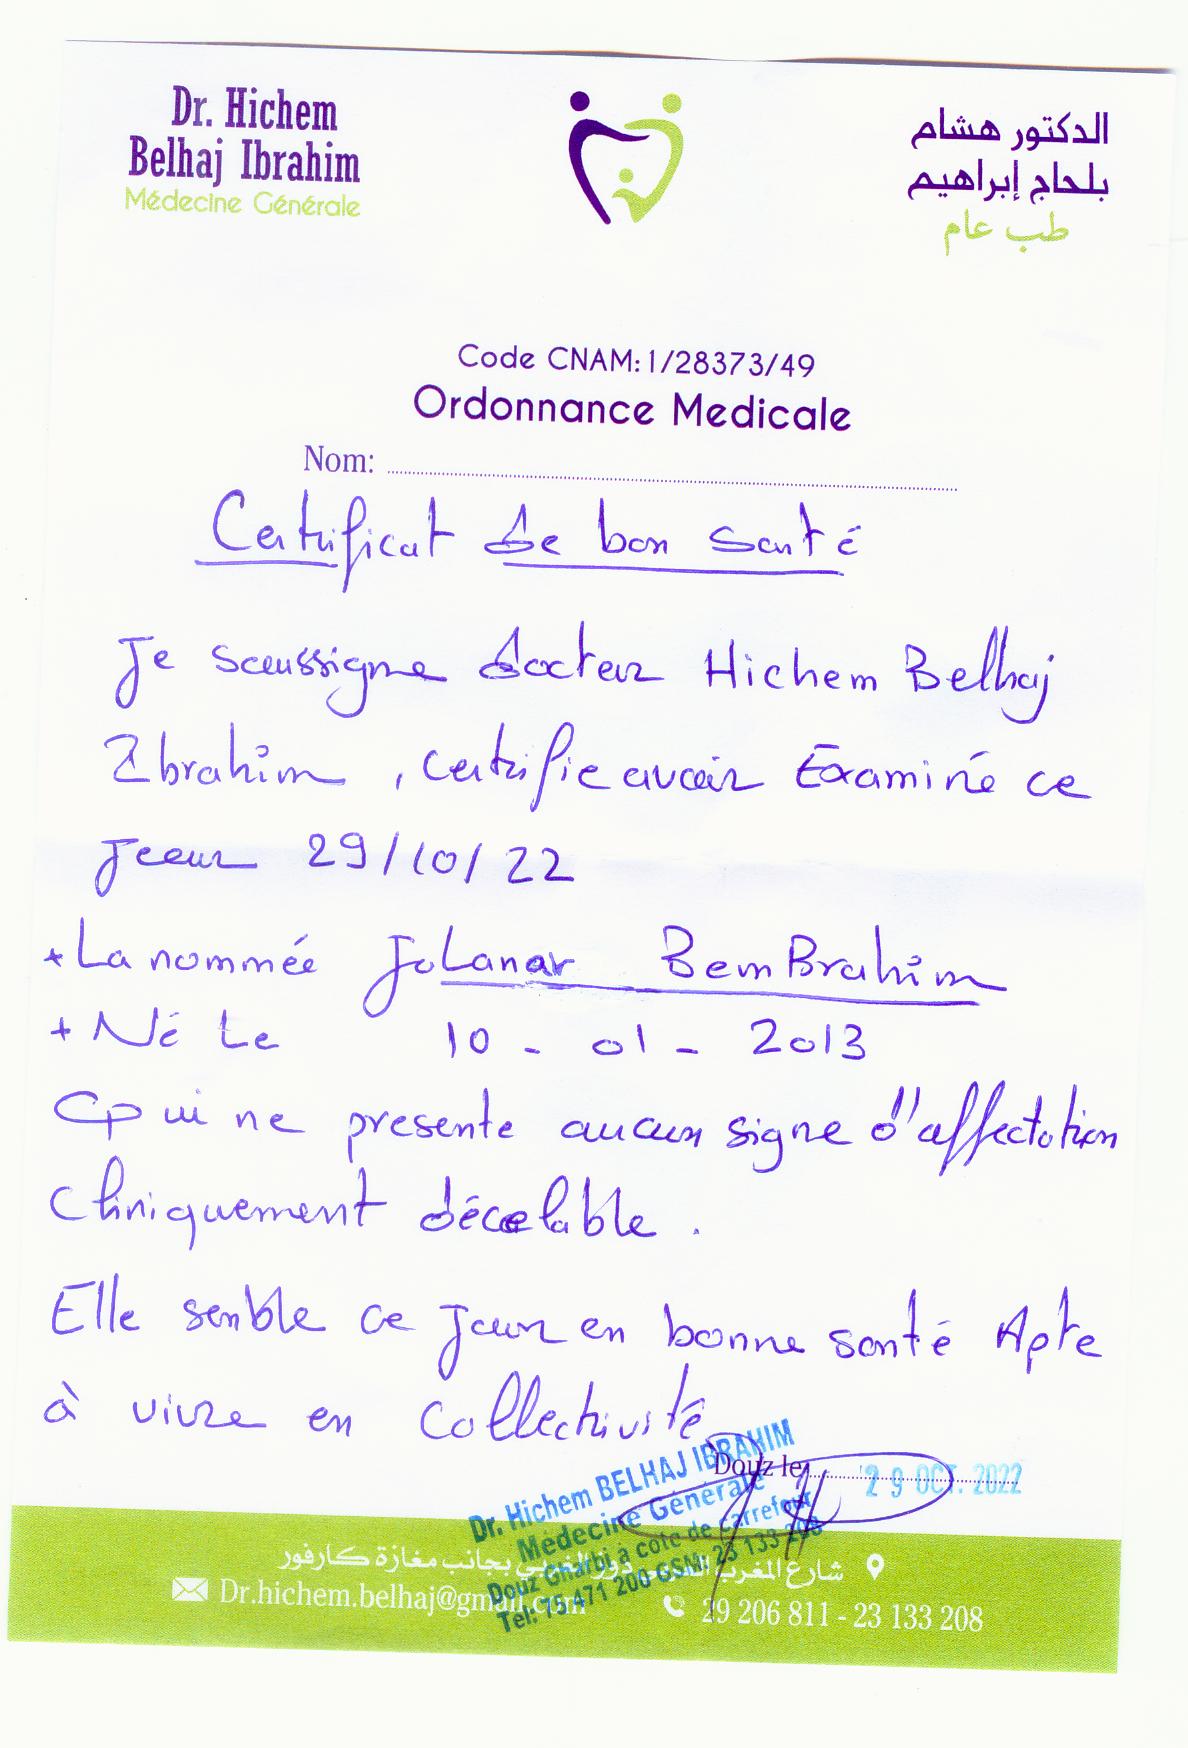 Dr. Hichem
Belhaj Ibrahim
Médecine Générale
الدكتور هشام
بلحاج إبراهيم
طب عام
Code CNAM: 1/28373/49
Ordonnance Medicale
Nom:
Certificat de bon santé
Je soussigne docteur Hichem Belhaj
Ibrahim , certifie avoir Examiné ce
jour 29/10/22
+ La nommée Jolanar Bem Brahim
+ Né Le 10 - 01 - 2013
Qui ne presente aucun signe d'affectation
Cliniquement décelable .
Elle semble ce jour en bonne santé Apte
à vivre en Collectivité
Douz le 29 OCT. 2022
Dr. Hichem BELHAJ IBRAHIM
Médecine Générale
Douz Gharbi à coté de carrefour
Tel: 75 471 200 GSM: 23 133 208
شارع المغرب بجانب مغازة كارفور
Dr.hichem.belhaj@gmail.com
29 206 811 - 23 133 208